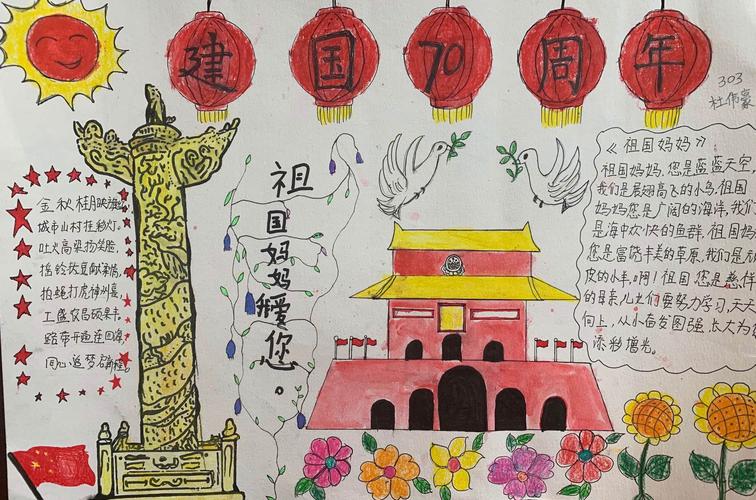 建国70周年
303
杜伟豪
金秋桂月映
城市山村挂彩灯。
吐火高梁扬笑脸,
拍蝇打虎神州晏,
工盛农昌硕果丰。
路带开通
同心追梦
祖国妈妈我爱您。
《祖国妈妈》
祖国妈妈,您是蓝蓝天空,
我们是展翅高飞的小鸟,祖国
妈妈您是广阔的海洋,我们
是海中欢快的鱼群,祖国妈
您是富饶丰美的草原,我们是
皮的小羊,啊!祖国您是慈祥
的母亲儿女们要努力学习,天天
向上,从小奋发图强,长大为
添彩增光。